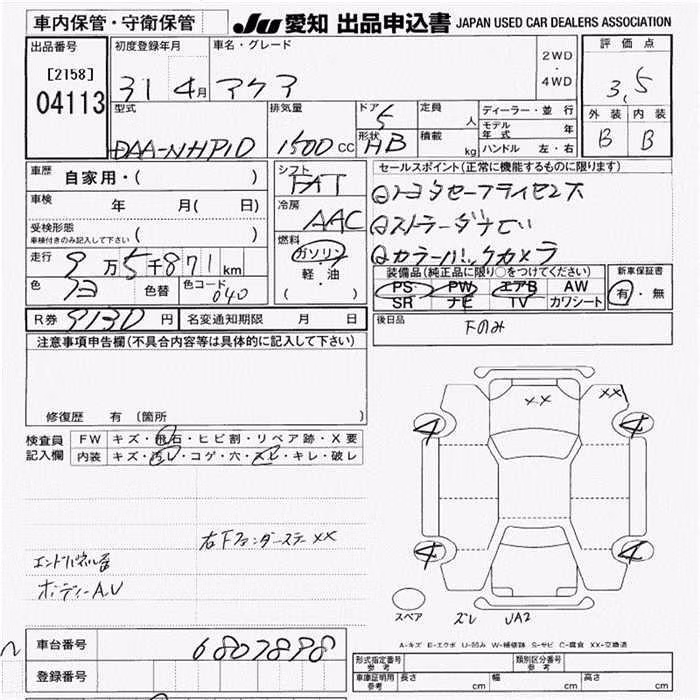 車内保管・守衛保管
JU 愛知 出品申込書 JAPAN USED CAR DEALERS ASSOCIATION
出品番号
[2158]
04113
初度登録年月
31 4月
車名・グレード
アクア
2WD
・
4WD
評価点
3.5
外装 内装
B B
型式
DAA-NHP10
排気量
1500 CC
ドア
5
形状
HB
定員
人
積載
kg
ディーラー・並行
モデル年式 年
ハンドル 左・右
車歴 自家用・( )
車検 年 月( 日)
受検形態
車検付きのみ記入して下さい ( )
走行 9万5千871km
色 色替
色コード 040
シフト
FAT
冷房
AAC
燃料
ガソリン
・
軽・油
( )
セールスポイント(正常に機能するものに限ります)
①トヨタセーフティセンス
②ストラーダナビ
③カラーバックカメラ
装備品(純正品に限り○をつけてください)
PS PW エアB AW
SR ナビ TV カワシート
新車保証書
有・無
後日品
下のみ
R券 9130円
名変通知期限 月 日
注意事項申告欄(不具合内容等は具体的に記入して下さい)
修復歴 有 〔箇所 〕
検査員記入欄
FW キズ・飛石・ヒビ割・リペア跡・X要
内装 キズ・汚レ・コゲ・穴・スレ・キレ・破レ
右Fフェンダーステー××
ボディーA.U
×× ××
4 4
4 4
スペア ズレ UA2
A-キズ E-エクボ U-凹み W-補修跡 S-サビ C-腐食 XX-交換済
車台番号 6807898
登録番号
形式指定番号 参考
類別区分番号 参考
車庫証明用 参考 長さ cm 幅 cm 高さ cm